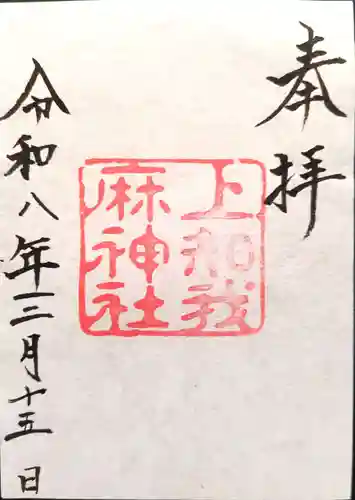 奉拝
上知我麻神社
令和八年三月十五日